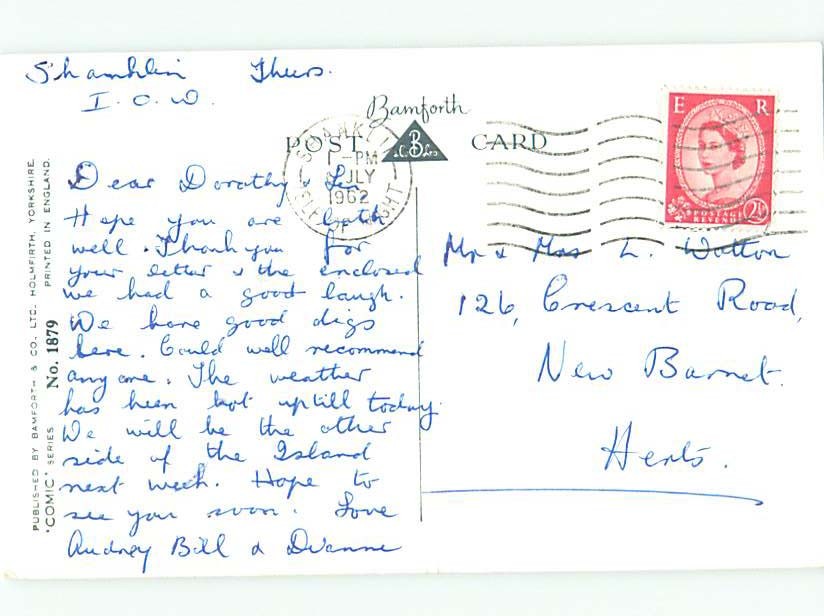 Shanklin Thurs.
I.O.W.
Bamforth
POST CARD
B
SHANKLIN
1-PM
JULY
1962
ISLE OF WIGHT
E R
POSTAGE
REVENUE
2½
Dear Dorothy & Len
Hope you are both
well. Thank you for
your letter & the enclosed
we had a good laugh.
We have good digs
here. Could well recommend
anyone. The weather
has been hot uptill today.
We will be the other
side of the Island
next week. Hope to
see you soon. Love
Audrey Bill & Dianne
Mr & Mrs L. Watton
126, Crescent Road,
New Barnet.
Herts.
PUBLISHED BY BAMFORTH & CO., LTD. HOLMFIRTH, YORKSHIRE.
"COMIC" SERIES No. 1879 PRINTED IN ENGLAND.